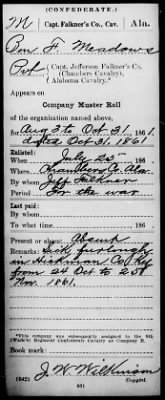 (CONFEDERATE.)
M Capt. Falkner's Co., Cav. Ala.
Ben F. Meadows
Pvt., Capt. Jefferson Falkner's Co.
(Chambers Cavalry),
Alabama Cavalry.*
Appears on
Company Muster Roll
of the organization named above,
for Aug 3 to Oct 31, 1861.
dated Oct 31, 1861
Enlisted:
When July 25, 186 .
Where Chambers Co. Ala.
By Jeff Falkner
Period For the war
Last paid:
By whom
To what time , 186 .
Present or absent Absent
Remarks: Sick furlough
in Hickman Co. Ky.
from 24 Oct to 25th
Nov. 1861.
*This company was subsequently assigned to the 8th
(Wade's) Regiment Confederate Cavalry as Company
Book mark:
J. W. Wilkinson
(642) Copyist.